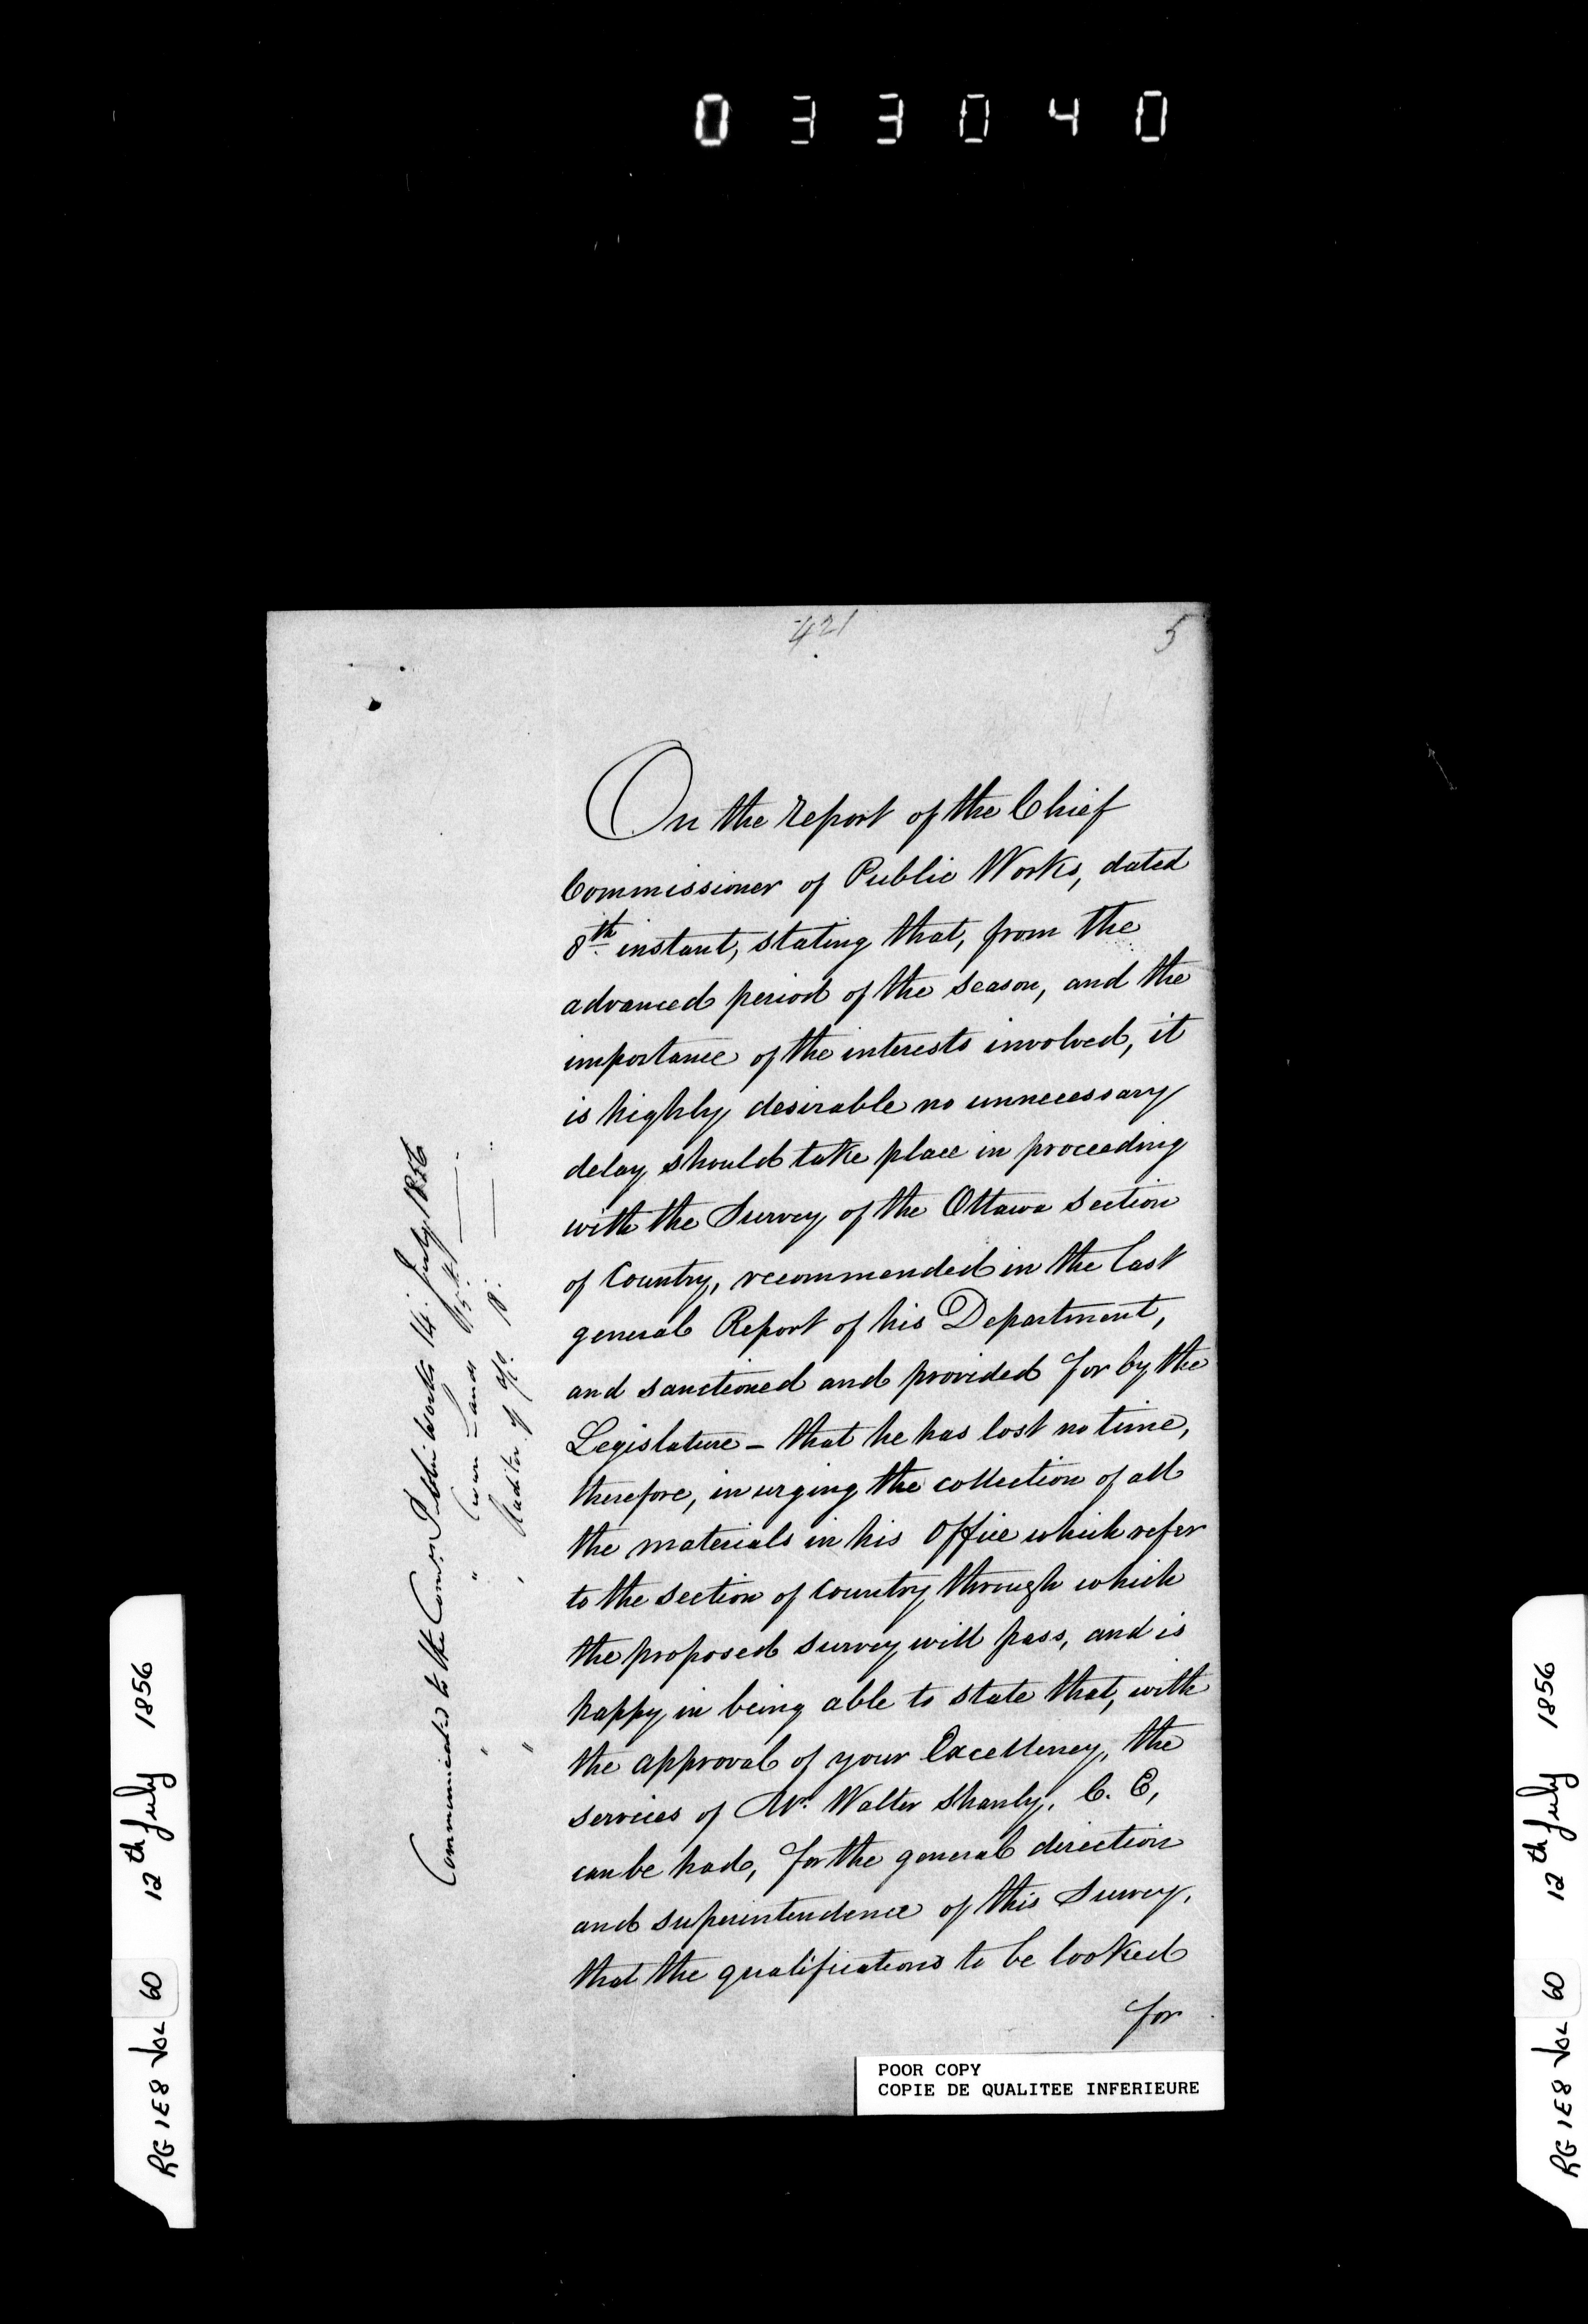 033040
421
5
On the report of the Chief
Commissioner of Public Works, dated
8th instant, stating that, from the
advanced period of the season, and the
importance of the interests involved, it
is highly desirable no unnecessary
delay should take place in proceeding
with the Survey of the Ottawa section
of Country, recommended in the last
general Report of his Department,
and sanctioned and provided for by the
Legislature – that he has lost no time,
therefore, in urging the collection of all
the materials in his Office which refer
to the section of Country through which
the proposed survey will pass, and is
happy in being able to state that, with
the approval of your Excellency, the
services of Mr. Walter Shanly, C. E,
can be had, for the general direction
and superintendence of this Survey,
that the qualifications to be looked
for
Communicated to the Comr. Public Works 14. July 1856
" " Crown Lands 15.
" " Auditor of 18.
POOR COPY
COPIE DE QUALITEE INFERIEURE
RG 1E8 VOL 60 12th July 1856
RG 1E8 VOL 60 12th July 1856